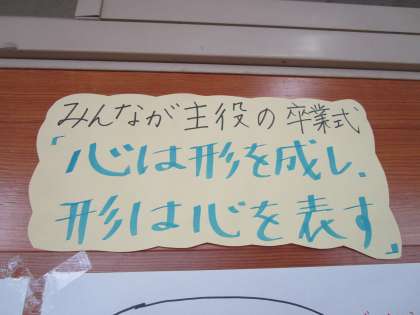 みんなが主役の卒業式
「心は形を成し、
形は心を表す」